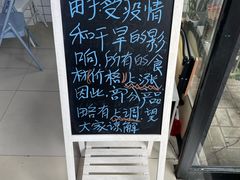 由于受疫情
和干旱的影
响,所有的食
材价格上涨
因此,部分产品
略有上调,望
大家谅解